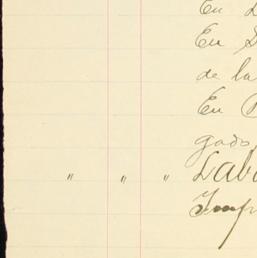 En
En
de la
En
gado
" " " Labo
Imp